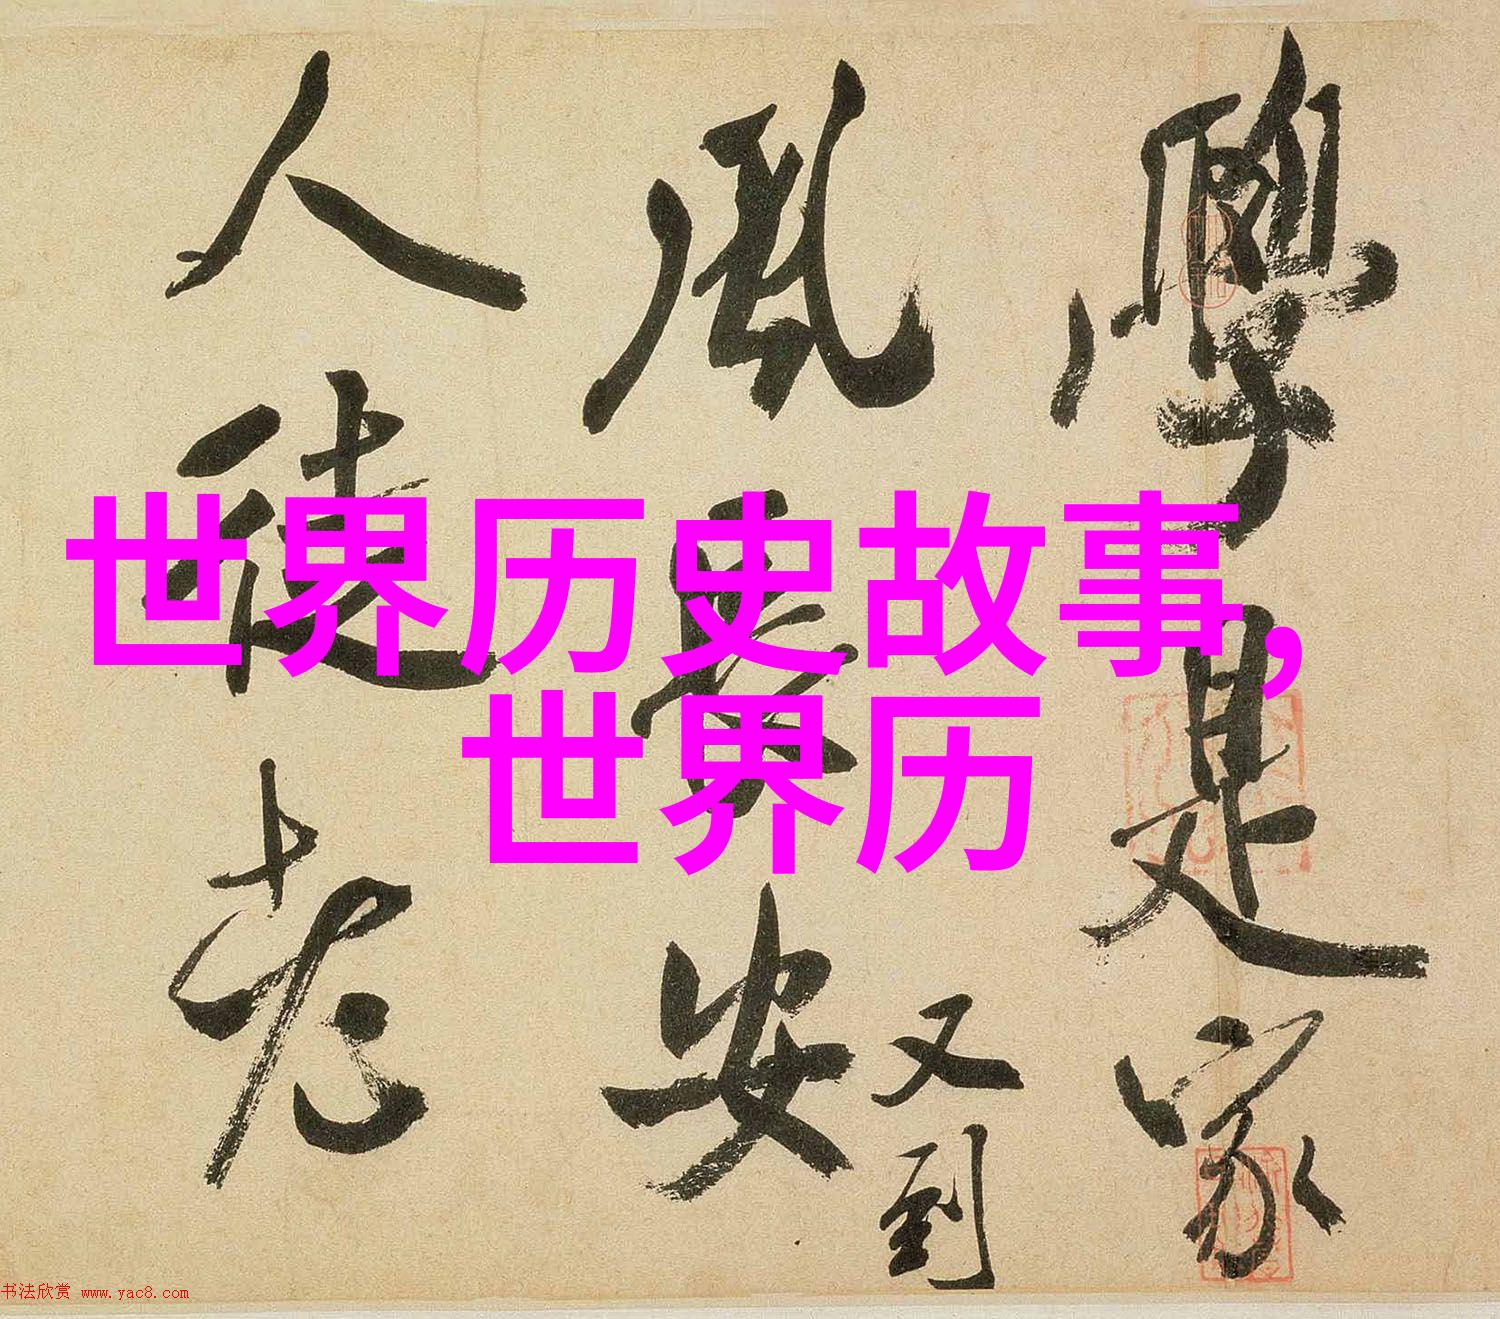 世界历史故事,
世界历
學是家
風長安
又到
人徒老
书法欣赏 www.yac8.com